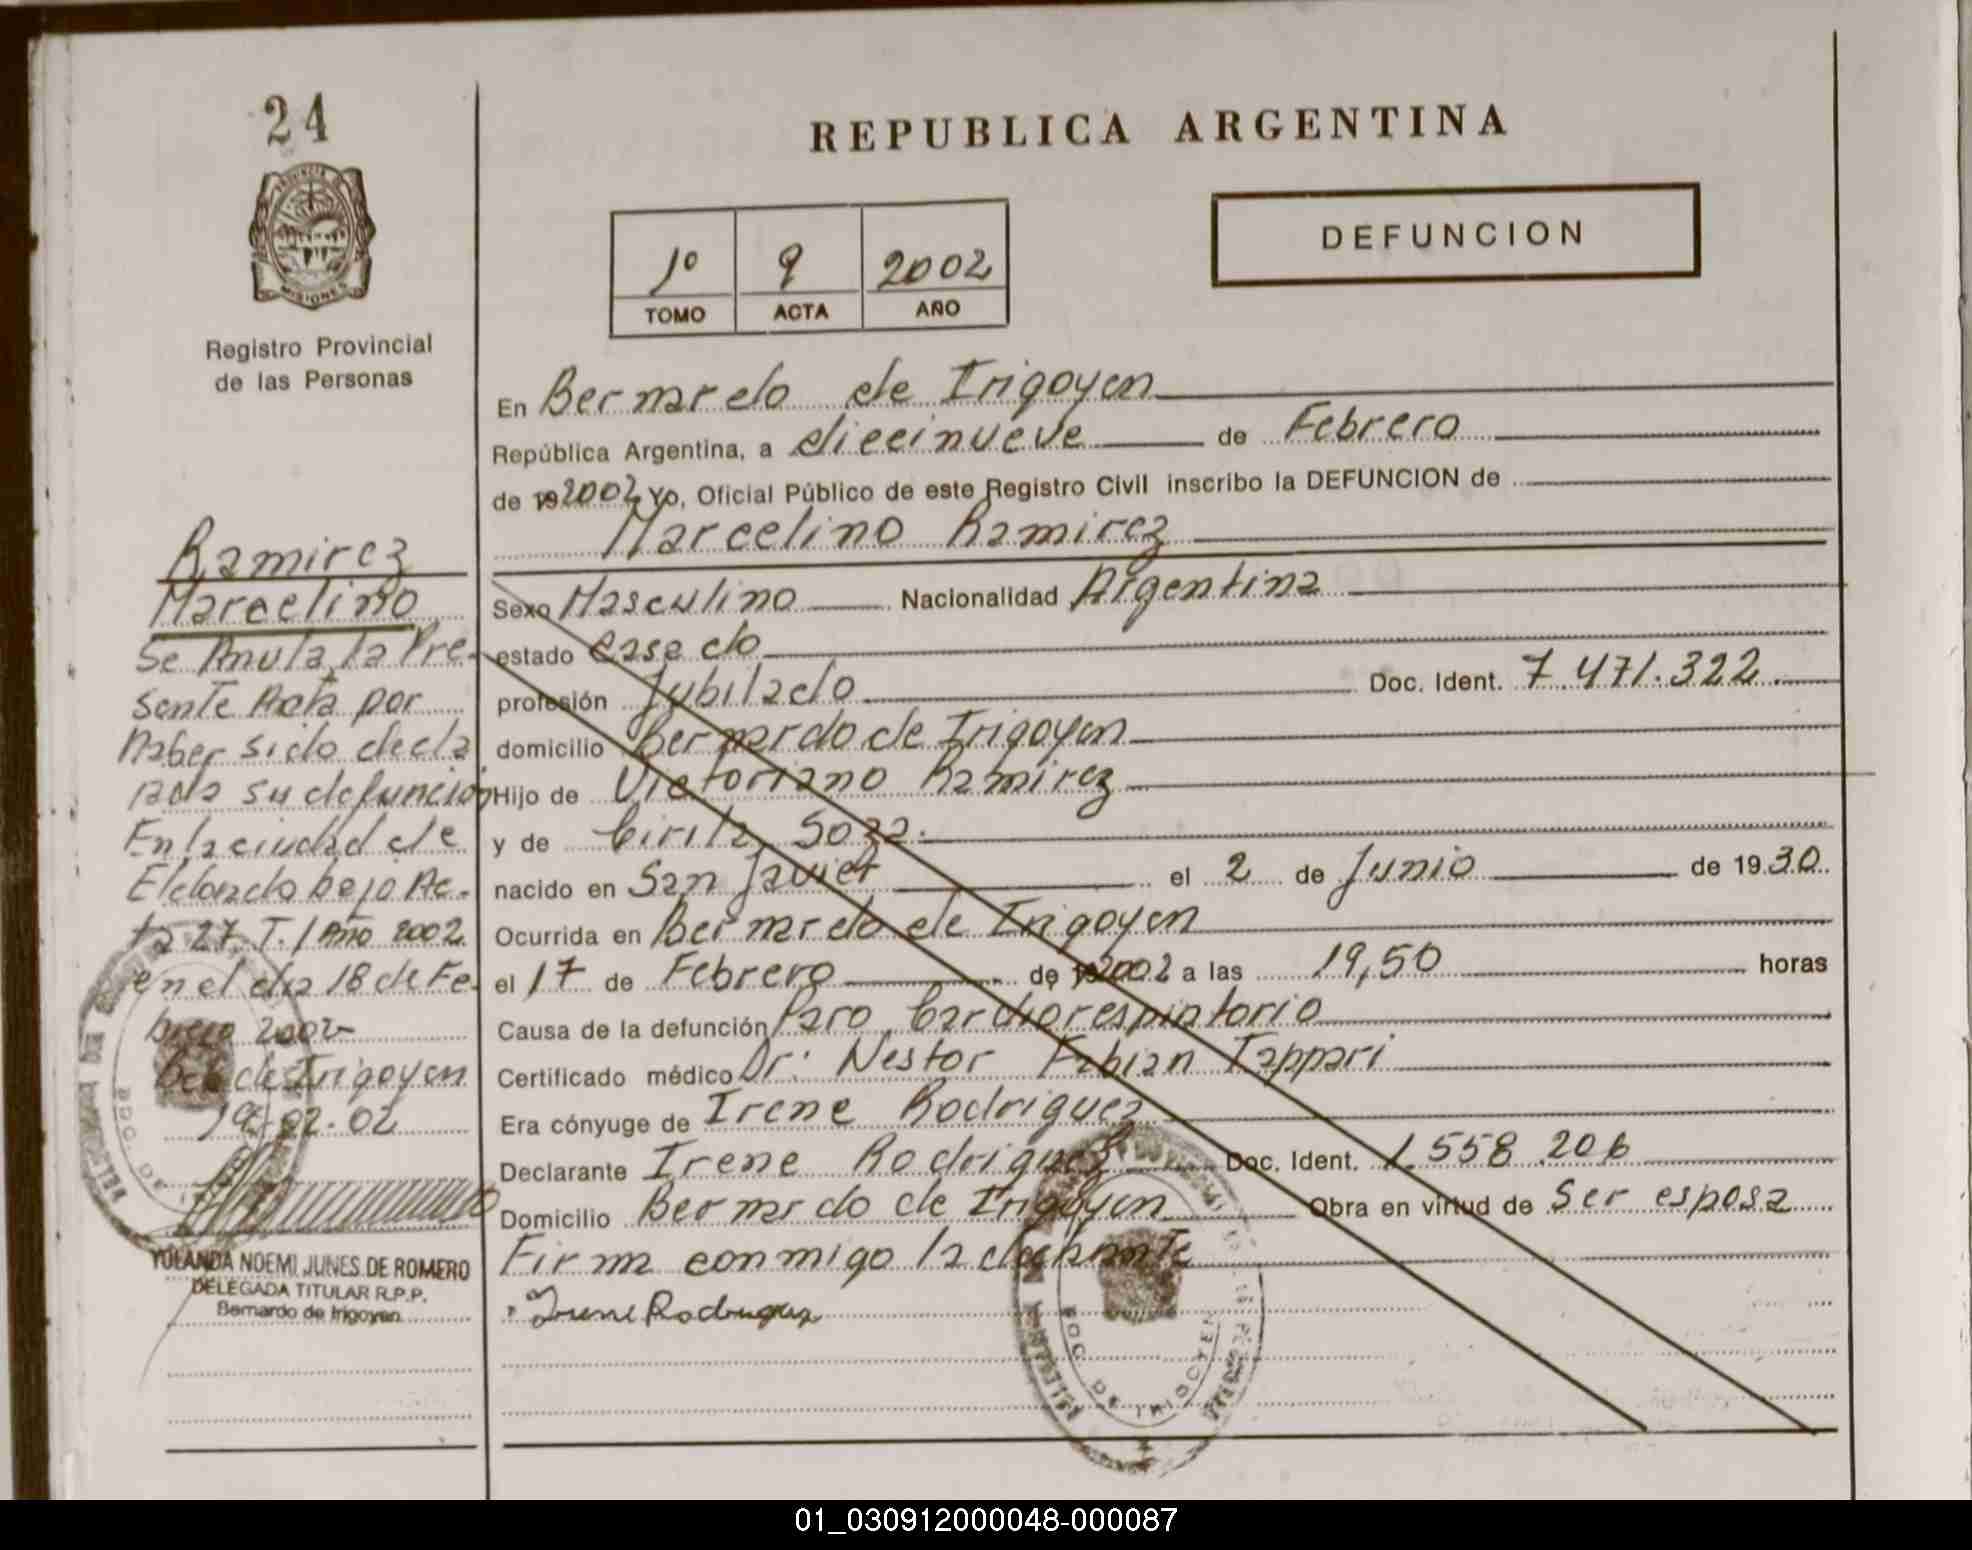 24
PROVINCIA DE
MISIONES
Registro Provincial
de las Personas
REPUBLICA ARGENTINA
DEFUNCION
1º 9 2002
TOMO ACTA AÑO
En Bernardo de Irigoyen
República Argentina, a diecinueve de Febrero
de 19 2002 Yo, Oficial Público de este Registro Civil inscribo la DEFUNCION de
Marcelino Ramirez
Sexo Masculino Nacionalidad Argentina
estado casado
profesión Jubilado Doc. Ident. 7.471.322
domicilio Bernardo de Irigoyen
Hijo de Victoriano Ramirez
y de Cirila Soza
nacido en San Javier el 2 de Junio de 1930
Ocurrida en Bernardo de Irigoyen
el 17 de Febrero de 19 2002 a las 19,50 horas
Causa de la defunción Paro Cardiorespiratorio
Certificado médico Dr: Nestor Fabian Tappari
Era cónyuge de Irene Rodriguez
Declarante Irene Rodriguez Doc. Ident. 1.558.206
Domicilio Bernardo de Irigoyen Obra en virtud de Ser esposa
Firma conmigo la declarante
Irene Rodriguez
Ramirez
Marcelino
Se Anula la Pre-
sente Acta por
haber sido decla
rada su defunción
En la ciudad de
Eldorado bajo Ac-
ta 27 T. 1 Año 2002
en el dia 18 de Fe-
brero 2002-
Bdo de Irigoyen
19-02-02
YOLANDA NOEMI JUNES DE ROMERO
DELEGADA TITULAR R.P.P.
Bernardo de Irigoyen
BDO. DE IRIGOYEN
01_030912000048-000087